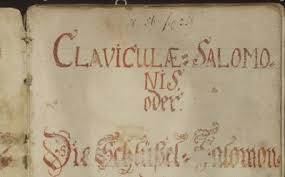 CLAVICULÆ=SALOMO-
NIS.
oder:
Die Schlüßel=Salomon.